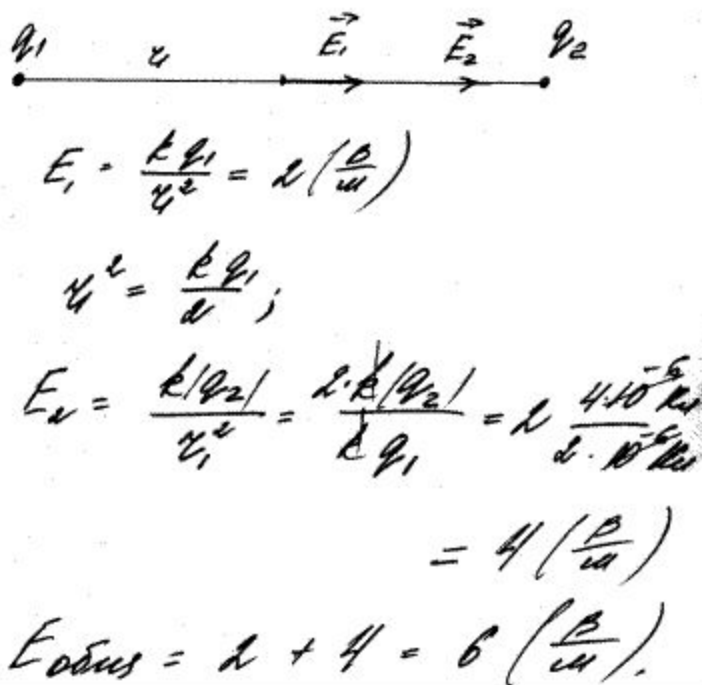 q₁ r E⃗₁ E⃗₂ q₂
E₁ = kq₁/r² = 2 (В/м)
r² = kq₁/2 ;
E₂ = k|q₂|/r₁² = 2·k|q₂|/kq₁ = 2 4·10⁻⁶Кл/2·10⁻⁶Кл
= 4 (В/м)
Eобщ = 2 + 4 = 6 (В/м).